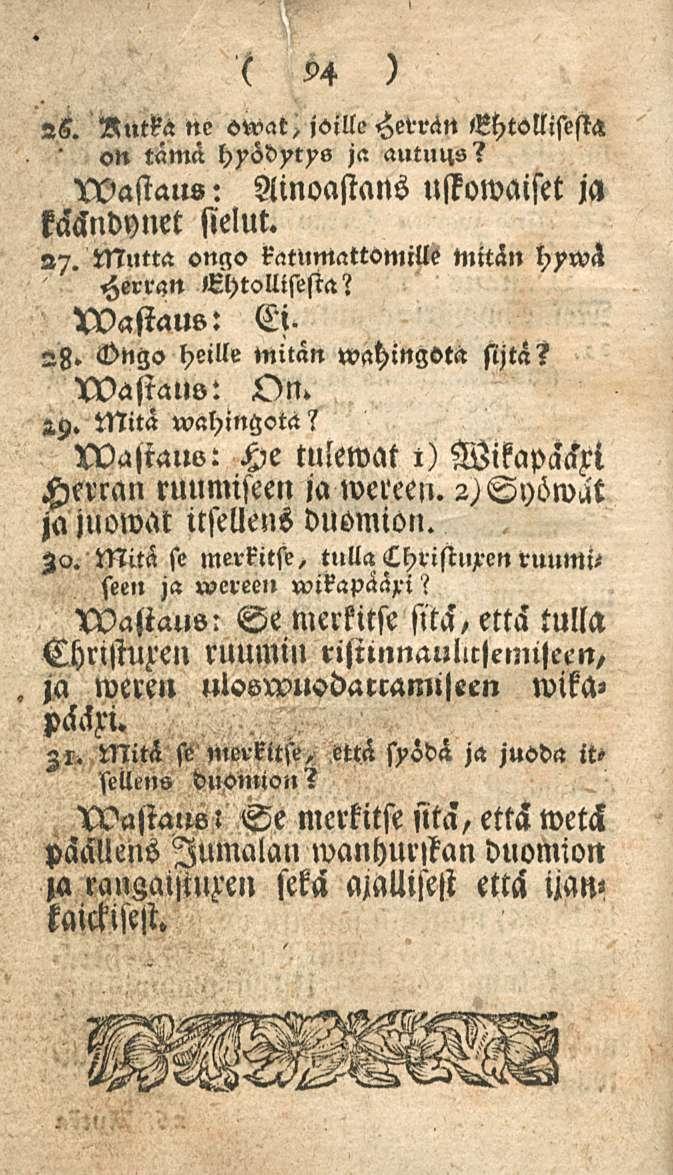 ( 94 )
26. Kutka ne owat, joille Herran Ehtollisesta
on tämä hyödytys ja autuus?
Wastaus: Ainoastans uskowaiset ja
käändynet sielut.
27. Mutta ongo katumattomille mitän hywä
Herran Ehtollisesta?
Wastaus: Ei.
28. Ongo heille mitän wahingota sijtä?
Wastaus: On.
29. Mitä wahingota?
Wastaus: He tulewat 1) Wikapääxi
Herran ruumiseen ja wereen. 2) Syöwät
ja juowat itsellens duomion.
30. Mitä se merkitse, tulla Christuxen ruumi-
seen ja wereen wikapääxi?
Wastaus: Se merkitse sitä, että tulla
Christuxen ruumin ristinnaulitsemiseen,
ja weren uloswuodattamiseen wika-
pääxi.
31. Mitä se merkitse, että syödä ja juoda it-
sellens duomion?
Wastaus: Se merkitse sitä, että wetä
päällens Jumalan wanhurskan duomion
ja rangaistuxen sekä ajallisest että ijan-
kaickisest.